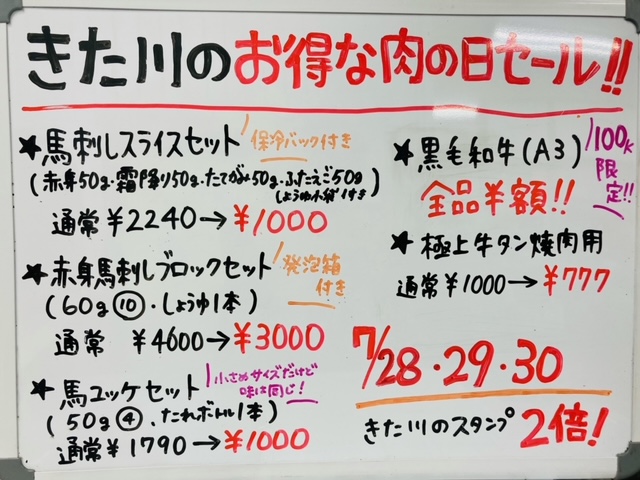 きた川のお得な肉の日セール!!
★馬刺しスライスセット
保冷バック付き
(赤身50g・霜降り50g・たてがみ50g・ふたえご50g
しょうゆ小袋1付き)
通常¥2240→¥1000
★赤身馬刺しブロックセット
発泡箱
付き
(60g⑩・しょうゆ1本)
通常 ¥4600→¥3000
★馬ユッケセット
小さめサイズだけど
味は同じ!
(50g④、たれボトル1本)
通常¥1790→¥1000
★黒毛和牛(A3)
100k
限定!!
全品半額!!
★極上牛タン焼肉用
通常¥1000→¥777
7/28・29・30
きた川のスタンプ 2倍!